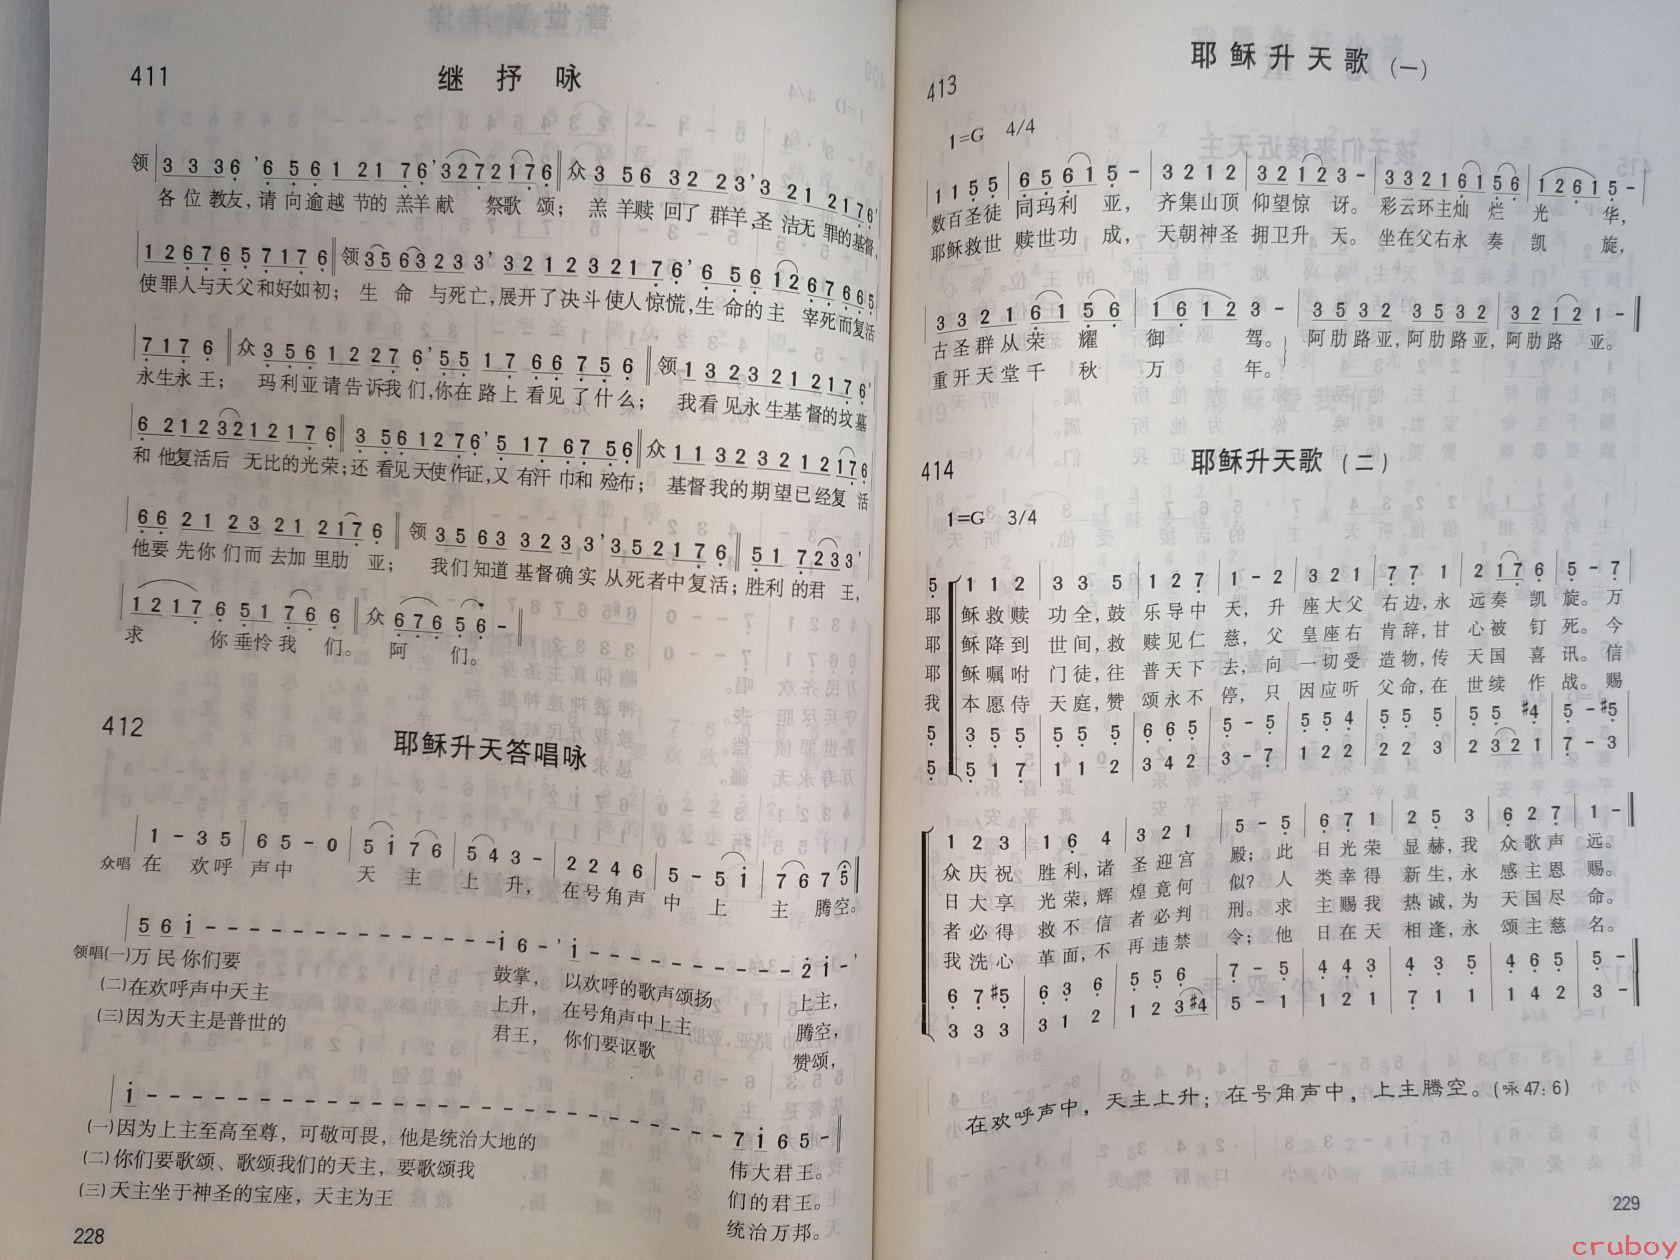 411
继 抒 咏
领 3 3 3 6 ' 6 5 6 1 2 1 7 6 ' 3 2 7 2 1 7 6 众 3 5 6 3 2 2 3 ' 3 2 1 2 1 7 6 '
各位教友,请向逾越节的羔羊献 祭歌颂; 羔羊赎回了群羊,圣洁无罪的基督,
1 2 6 7 6 5 7 1 7 6 领 3 5 6 3 2 3 3 ' 3 2 1 2 3 2 1 7 6 ' 6 5 6 1 2 6 7 6 6 5
使罪人与天父和好如初; 生命与死亡,展开了决斗使人惊慌,生命的主 宰死而复活
7 1 7 6 众 3 5 6 1 2 2 7 6 ' 5 5 1 7 6 6 7 5 6 领 1 3 2 3 2 1 2 1 7 6
永生永王; 玛利亚请告诉我们,你在路上看见了什么; 我看见永生基督的坟墓
6 2 1 2 3 2 1 2 1 7 6 3 5 6 1 2 7 6 ' 5 1 7 6 7 5 6 众 1 1 3 2 3 2 1 2 1 7 6
和他复活后 无比的光荣;还看见天使作证,又有汗巾和殓布; 基督我的期望已经复活
6 6 2 1 2 3 2 1 2 1 7 6 领 3 5 6 3 3 2 3 3 ' 3 5 2 1 7 6 5 1 7 2 3 3 '
他要先你们而去加里肋亚; 我们知道基督确实从死者中复活;胜利的君王,
1 2 1 7 6 5 1 7 6 6 众 6 7 6 5 6 -
求 你垂怜我们。 阿 们。
412
耶稣升天答唱咏
1 - 3 5 6 5 - 0 5 i 7 6 5 4 3 - 2 2 4 6 5 - 5 i 7 6 7 5
众唱 在 欢呼 声中 天 主 上升, 在号角声 中 上 主 腾空。
5 6 i - - - - - - - - - - - i 6 - ' i - - - - - - - - - 2 i - '
领唱(一)万民你们要 鼓掌, 以欢呼的歌声颂扬 上主,
(二)在欢呼声中天主 上升, 在号角声中上主 腾空,
(三)因为天主是普世的 君王, 你们要讴歌 赞颂,
i - - - - - - - - - - - - - - - - - - - - - - - 7 i 6 5 -
(一)因为上主至高至尊,可敬可畏,他是统治大地的 伟大君王。
(二)你们要歌颂、歌颂我们的天主,要歌颂我 们的君王。
(三)天主坐于神圣的宝座,天主为王 统治万邦。
228
413
耶稣升天歌(一)
1=G 4/4
1 1 5 5 6 5 6 1 5 - 3 2 1 2 3 2 1 2 3 - 3 3 2 1 6 1 5 6 1 2 6 1 5 -
数百圣徒 同玛利 亚, 齐集山顶 仰望惊 讶。彩云环主灿 烂 光 华,
耶稣救世 赎世功 成, 天朝神圣 拥卫升 天。坐在父右永 奏 凯 旋,
3 3 2 1 6 1 5 6 1 6 1 2 3 - 3 5 3 2 3 5 3 2 3 2 1 2 1 -
古圣群从荣 耀 御 驾。 阿肋路亚,阿肋路亚,阿肋路 亚。
重开天堂千 秋 万 年。
414
耶稣升天歌(二)
1=G 3/4
5 1 1 2 3 3 5 1 2 7 1 - 2 3 2 1 7 7 1 2 1 7 6 5 - 7
耶 稣救赎 功全,鼓 乐导中 天,升 座大父 右边,永 远奏凯 旋。万
耶 稣降到 世间,救 赎见仁 慈,父 皇座右 肯辞,甘 心被钉 死。今
耶 稣嘱咐 门徒,往 普天下 去,向 一切受 造物,传 天国喜 讯。信
我 本愿侍 天庭,赞 颂永不 停,只 因应听 父命,在 世续作 战。赐
5 3 5 5 5 5 5 6 6 5 5 - 5 5 5 4 5 5 5 5 5 #4 5 - #5
5 5 1 7 1 1 2 3 4 2 3 - 7 1 2 2 2 2 3 2 3 2 1 7 - 3
1 2 3 1 6 4 3 2 1 5 - 5 6 7 1 2 5 3 6 2 7 1 -
众庆祝 胜利,诸 圣迎宫 殿;此 日光荣 显赫,我 众歌声 远。
日大享 光荣,辉 煌竟何 似?人 类幸得 新生,永 感主恩 赐。
者必得 救不信 者必判 刑。求 主赐我 热诚,为 天国尽 命。
我洗心 革面,不 再违禁 令;他 日在天 相逢,永 颂主慈 名。
6 7 #5 6 3 6 5 5 6 7 - 5 4 4 3 4 3 5 4 6 5 5 -
3 3 3 3 1 2 1 2 3 #4 5 - 1 1 2 1 7 1 1 1 4 2 3 -
在欢呼声中,天主上升;在号角声中,上主腾空。(咏47:6)
229
cruboy